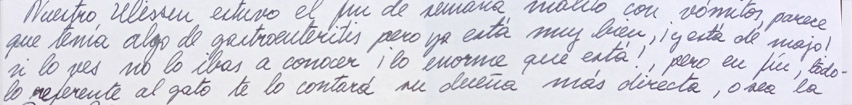 Nuestro Ulissen estuvo el fin de semana malito con vómitos, parece
que tenía algo de gastroenteritis pero ya está muy bien, ¡y está de majo!
si lo ves no lo ibas a conocer ¡lo enorme que está!, pero en fin, todo-
lo referente al gato te lo contará su dueña más directa, o sea la